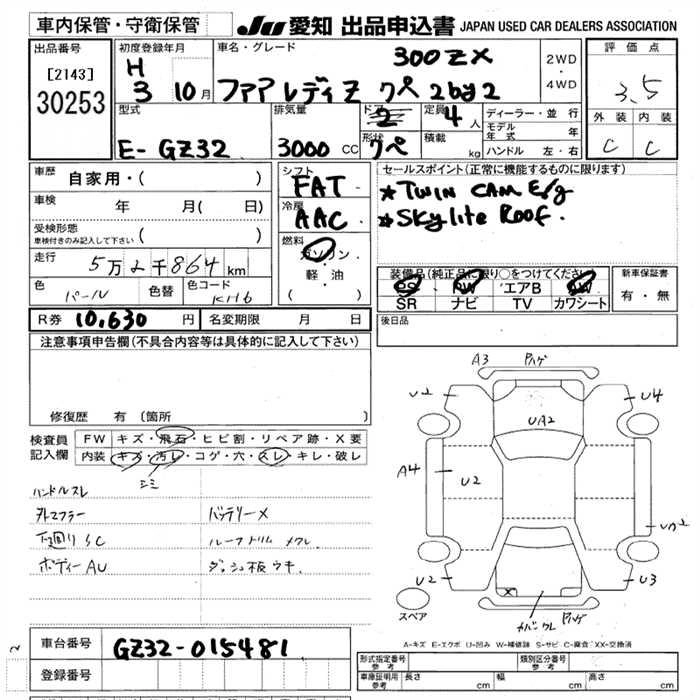 車内保管・守衛保管
JU 愛知 出品申込書 JAPAN USED CAR DEALERS ASSOCIATION
出品番号
[2143]
30253
初度登録年月
H 3 10月
車名・グレード
300ZX
フェアレディZ クペ 2by2
2WD
・
4WD
評価点
3.5
外装 内装
C C
型式
E-GZ32
排気量
3000 CC
ドア
2
形状
クペ
定員
4 人
積載
kg
ディーラー・並行
モデル年式 年
ハンドル 左・右
車歴
自家用・( )
車検 年 月( 日)
受検形態
車検付きのみ記入して下さい ( )
走行 5万2千864km
色 パール 色替 色コード KH6
シフト
FAT
冷房
AAC
燃料
ガソリン
・
軽・油
( )
セールスポイント(正常に機能するものに限ります)
*TWIN CAM E/g
*Skylite Roof.
装備品(純正品に限り○をつけてください)
PS PW エアB AW
SR ナビ TV カワシート
新車保証書
有・無
R券 10,630 円 名変期限 月 日
後日品
注意事項申告欄(不具合内容等は具体的に記入して下さい)
修復歴 有 〔箇所 〕
検査員記入欄
FW キズ・飛石・ヒビ割・リペア跡・X要
内装 キズ・汚レ・コゲ・穴・スレ・キレ・破レ
シミ
ハンドルスレ
外マフラー バッテリーX
下廻りSC ルーフトリム メクレ
ボディーAU ダッシュ板ウキ.
A3 Pハゲ
U2 U4
UA2
A4 U2
U2 U3
X
カバーワレ Pハゲ
スペア
A-キズ E-エクボ U-凹み W-補修跡 S-サビ C-腐食 XX-交換済
車台番号 GZ32-015481
登録番号
2
形式指定番号
参考
類別区分番号
参考
車庫証明用
参考
長さ cm 幅 cm 高さ cm